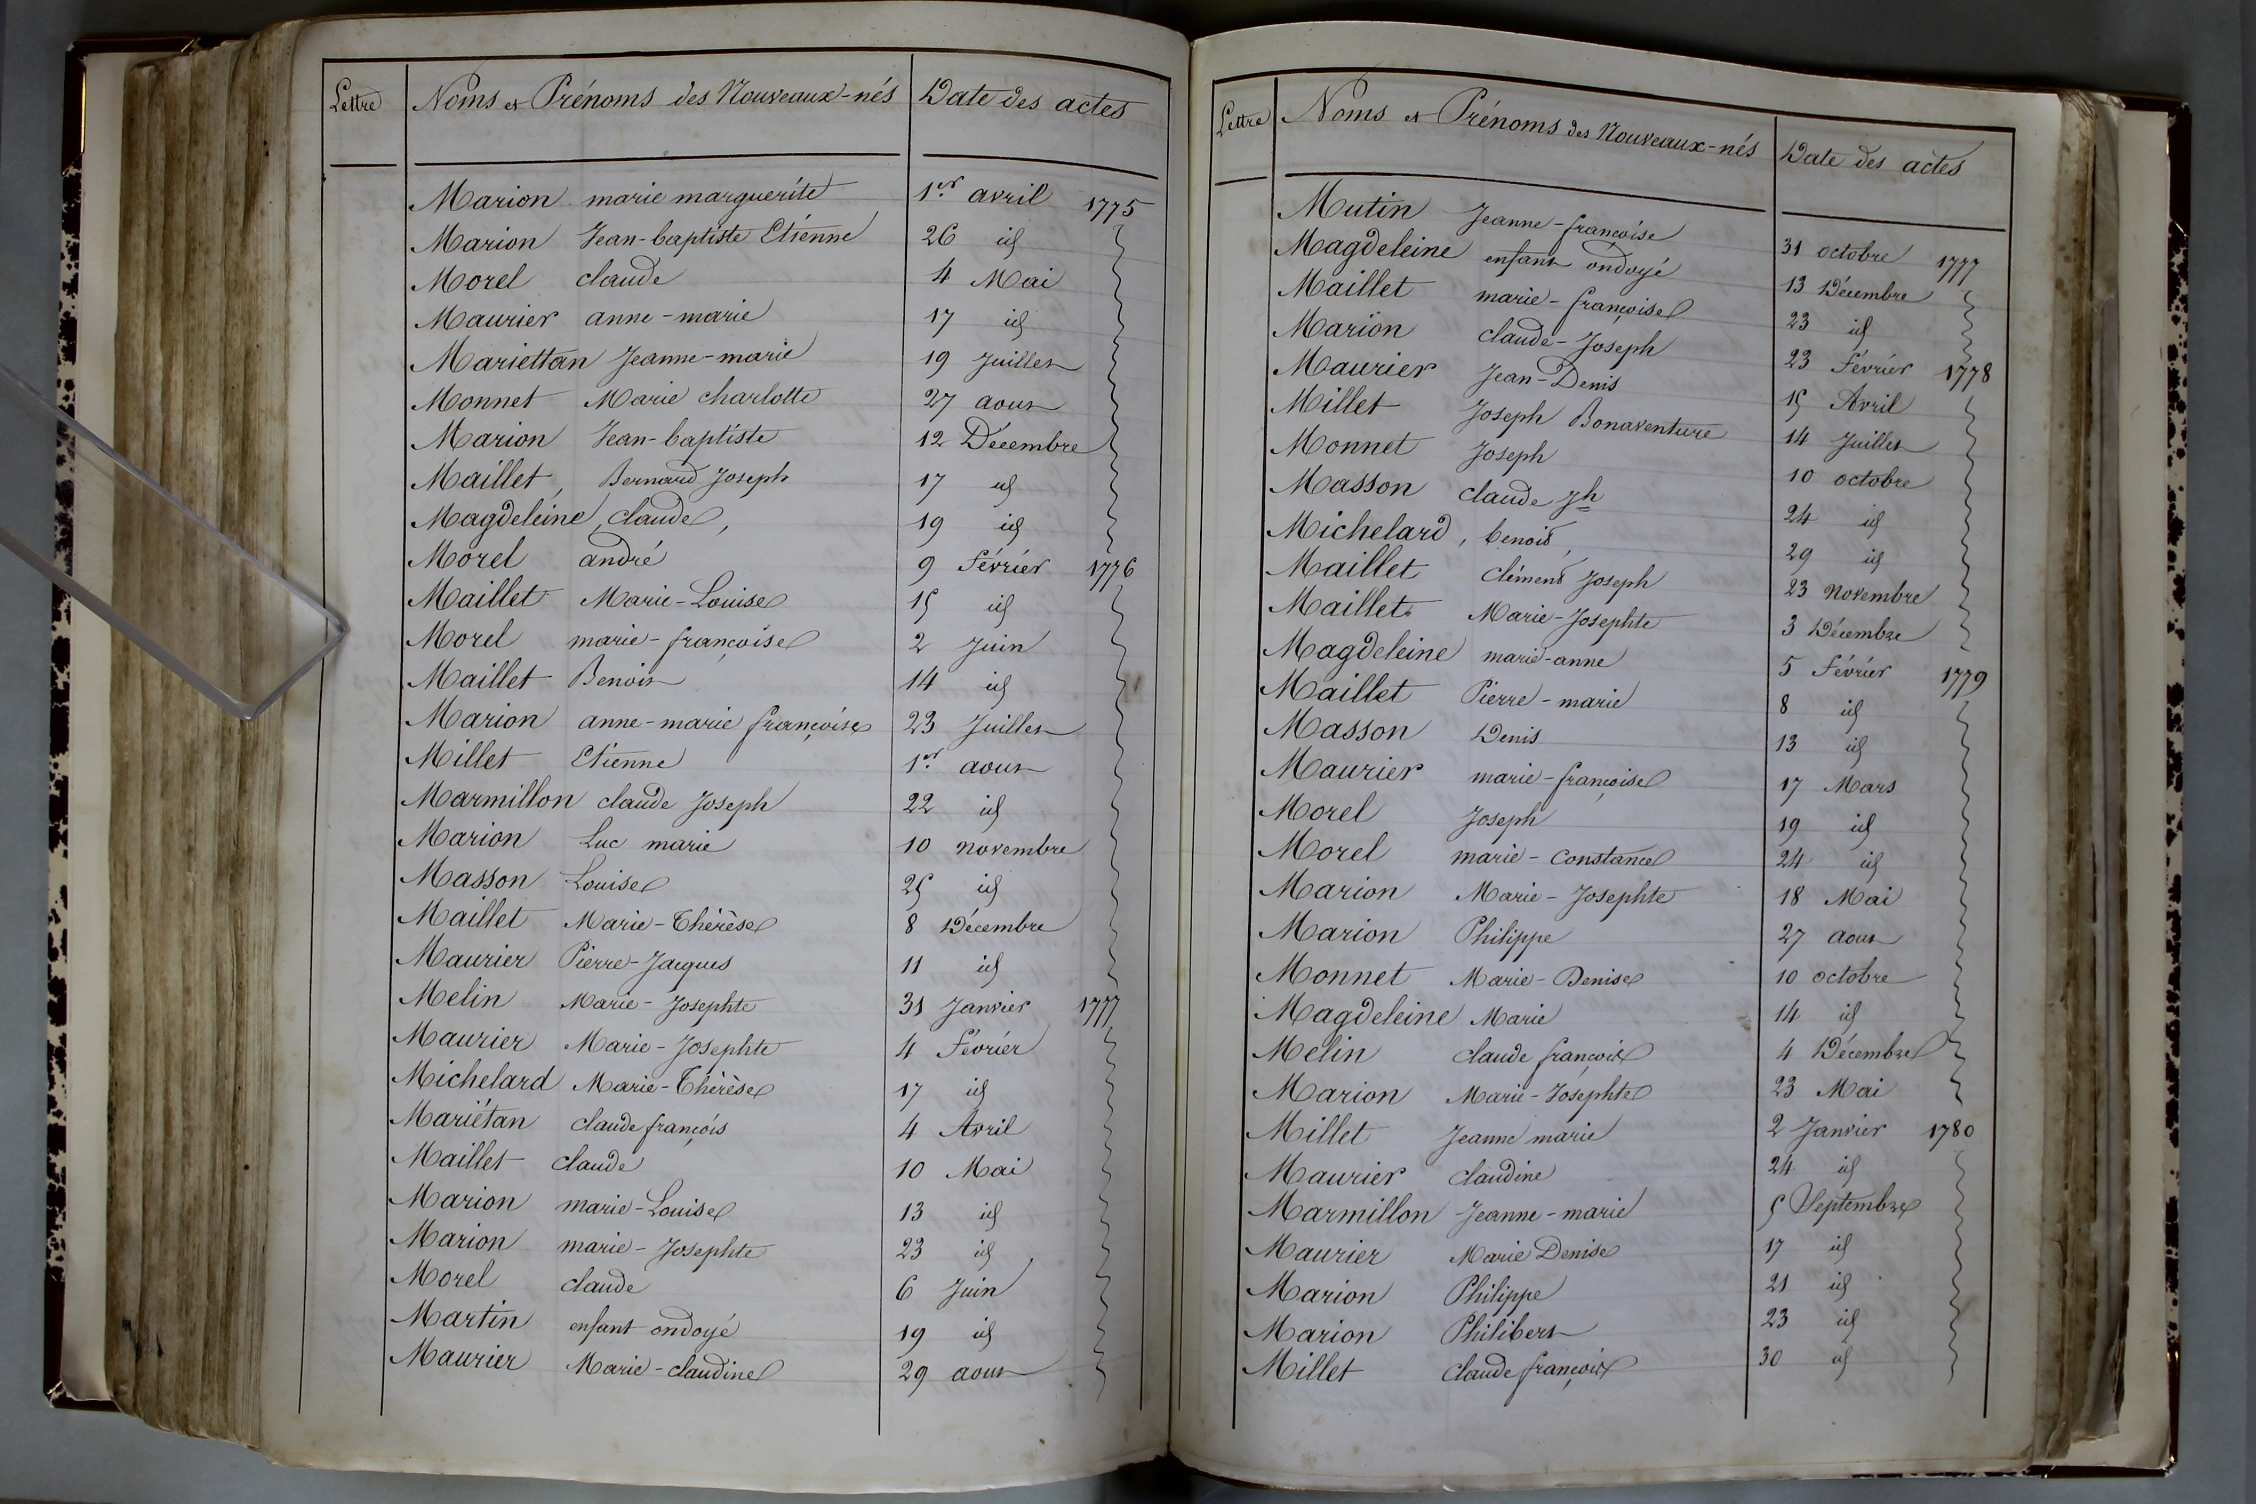 Lettre Noms et Prénoms des Nouveaux-nés Date des actes
Marion marie marguerite 1er avril 1775
Marion Jean-baptiste Etienne 26 id
Morel claude 4 Mai
Maurier anne-marie 17 id
Mariettan Jeanne-marie 19 Juillet
Monnet Marie charlotte 27 aout
Marion Jean-baptiste 12 Décembre
Maillet, Bernard Joseph 17 id
Magdeleine, claude, 19 id
Morel andré 9 Février 1776
Maillet Marie-Louise 15 id
Morel marie-françoise 2 Juin
Maillet Benoit 14 id
Marion anne-marie françoise 23 Juillet
Millet Etienne 1er aout
Marmillon claude Joseph 22 id
Marion Luc marie 10 novembre
Masson Louise 25 id
Maillet Marie-Thérèse 8 Décembre
Maurier Pierre-Jacques 11 id
Melin Marie-Josephte 31 Janvier 1777
Maurier Marie-Josephte 4 Février
Michelard Marie-Thérèse 17 id
Mariétan claude françois 4 Avril
Maillet claude 10 Mai
Marion marie-Louise 13 id
Marion marie-Josephte 23 id
Morel claude 6 Juin
Martin enfant ondoyé 19 id
Maurier Marie-claudine 29 aout
Lettre Noms et Prénoms des Nouveaux-nés Date des actes
Mutin Jeanne-françoise 31 octobre 1777
Magdeleine enfant ondoyé 13 Décembre
Maillet marie-françoise 23 id
Marion claude-Joseph 23 Février 1778
Maurier Jean-Denis 15 Avril
Millet Joseph Bonaventure 14 Juillet
Monnet Joseph 10 octobre
Masson claude Jh 24 id
Michelard, benoit, 29 id
Maillet clément Joseph 23 novembre
Maillet Marie-Josephte 3 Décembre
Magdeleine marie-anne 5 Février 1779
Maillet Pierre-marie 8 id
Masson Denis 13 id
Maurier marie-françoise 17 Mars
Morel Joseph 19 id
Morel marie-Constance 24 id
Marion Marie-Josephte 18 Mai
Marion Philippe 27 aout
Monnet Marie-Denise 10 octobre
Magdeleine Marie 14 id
Melin claude françois 4 Décembre
Marion Marie-Josephte 23 Mai
Millet Jeanne marie 2 Janvier 1780
Maurier claudine 24 id
Marmillon Jeanne-marie 5 Septembre
Maurier Marie Denise 17 id
Marion Philippe 21 id
Marion Philibert 23 id
Millet claude françois 30 id